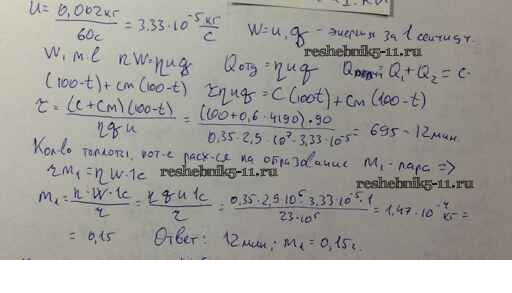 u = 0,002кг / 60с = 3.33·10⁻⁵ кг/с W=u,q - энергия за 1 секунду.
reshebnik5-11.ru
W, м.е ηW=ηuq Qотд = ηuq Q₁+Q₂ = c·
(100-t)+cm(100-t) τηuq = C(100-t)+cm(100-t)
τ = (c+cm)(100-t) / ηqu = (100+0,6·4190)·90 / 0,35·2,9·10⁷·3,33·10⁻⁵ = 695 - 12мин.
Кол-во теплоты, кот-е расх-ся на образование m₁-пара =>
ηm₁=ηW·1c reshebnik5-11.ru reshebnik5-11.ru
m₁ = η·W·1c / r = ηqu1c / r = 0,35·2,9·10⁵·3,33·10⁻⁵·1 / 23·10⁵ = 1,47·10⁻⁴ кг =
= 0,15 Ответ: 12мин; m₁ = 0,15г.